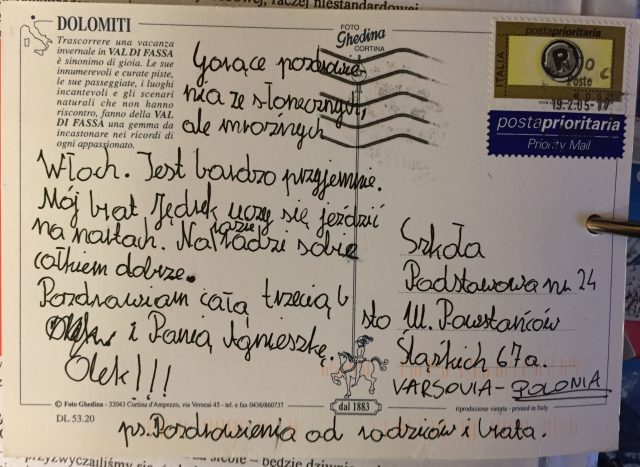 DOLOMITI
Trascorrere una vacanza
invernale in VAL DI FASSA
è sinonimo di gioia. Le sue
innumerevoli e curate piste,
le sue passeggiate, i luoghi
incantevoli e gli scenari
naturali che non hanno
riscontro, fanno della VAL
DI FASSA una gemma da
incastonare nei ricordi di
ogni appassionato.
FOTO
Ghedina
CORTINA
postaprioritaria
ITALIA
19.2.05-17
postaprioritaria
Priority Mail
Gorące pozdrowie-
nia ze słonecznych,
ale mroźnych
Włoch. Jest bardzo przyjemnie.
Mój brat Jędrek uczy się jeździć
na nartach. Na razie radzi sobie
całkiem dobrze.
Pozdrawiam całą trzecią b
i Panią Agnieszkę.
Olek!!!
Szkoła
Podstawowa nr 24
Ul. Powstańców
Śląskich 67a.
VARSOVIA-POLONIA
© Foto Ghedina - 32043 Cortina d'Ampezzo, via Verocai 45 - tel. e fax 0436/860737
dal 1883
riproduzione vietata - printed in Italy
DL 53.20
ps. Pozdrowienia od rodziców i brata.